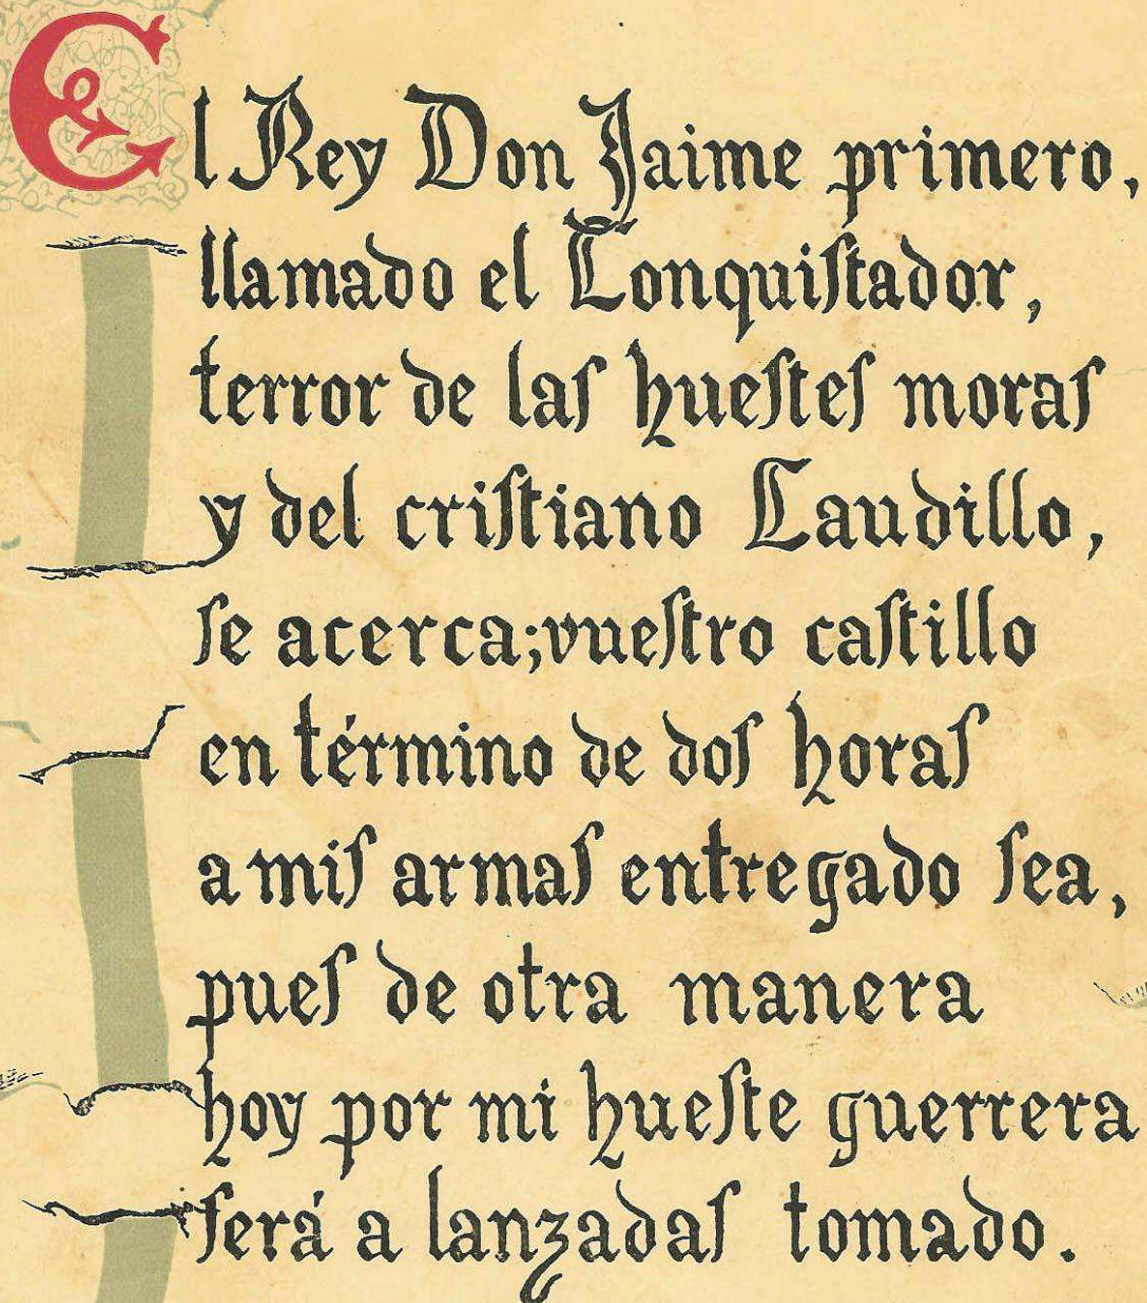 El Rey Don Jaime primero,
llamado el Conquiſtador,
terror de laſ hueſteſ moraſ
y del criſtiano Caudillo,
ſe acerca; vueſtro caſtillo
en término de doſ horaſ
a miſ armaſ entregado ſea,
pueſ de otra manera
hoy por mi hueſte guerrera
ſerá a lanzadaſ tomado.